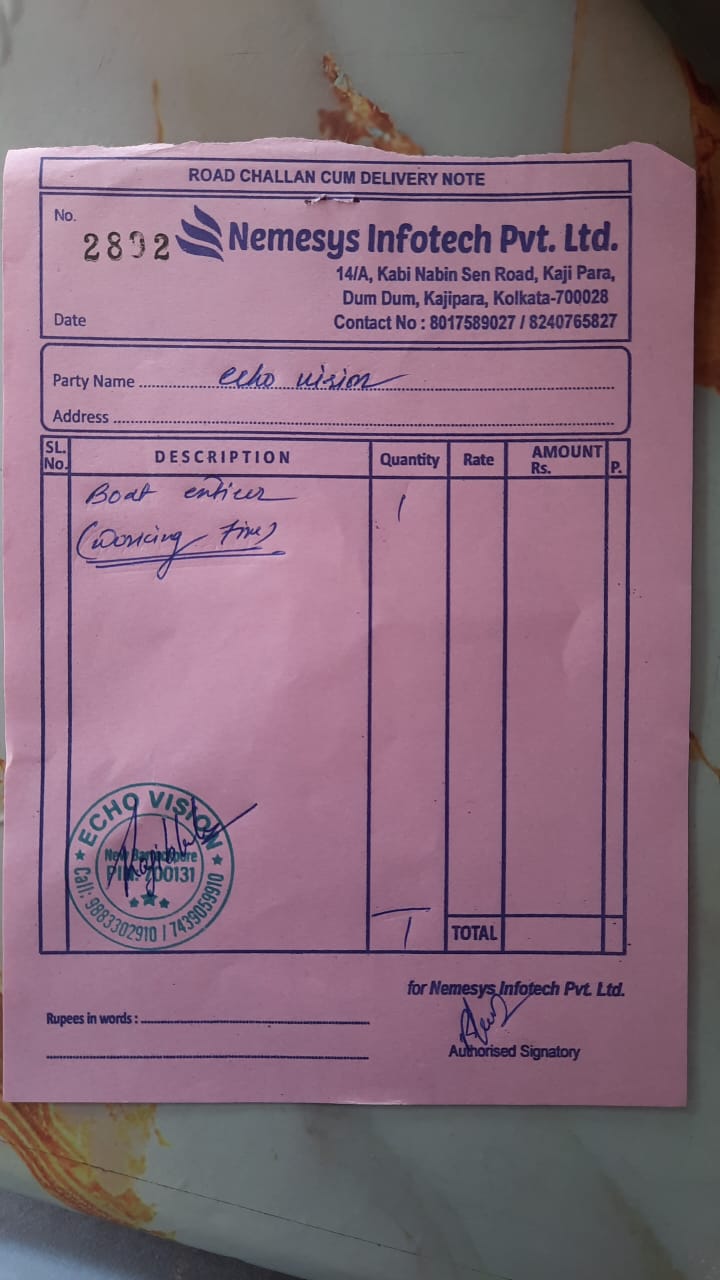 ROAD CHALLAN CUM DELIVERY NOTE
No.
2892
Nemesys Infotech Pvt. Ltd.
14/A, Kabi Nabin Sen Road, Kaji Para,
Dum Dum, Kajipara, Kolkata-700028
Date
Contact No : 8017589027 / 8240765827
Party Name echo vision
Address
SL. No. DESCRIPTION Quantity Rate AMOUNT Rs. P.
Boat 1
(Working Fine)
ECHO VISION
New Barrackpore
PIN: 700131
Call: 9883302910 / 7439059910
1 TOTAL
for Nemesys Infotech Pvt. Ltd.
Rupees in words :
Authorised Signatory